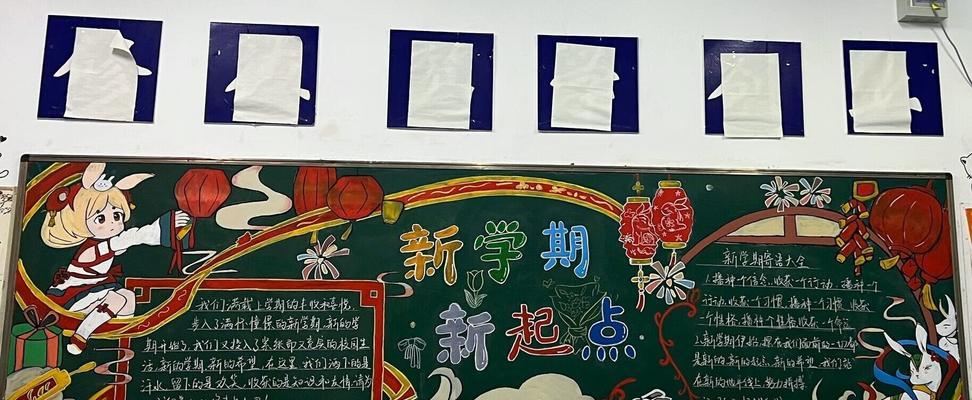 新学期
新起点
我们满载上学期的丰收和喜悦,
步入了满怀憧憬的新学期,新的学
期开始了,我们又投入紧张却又充实的校园生
活,新的学期,新的希望,在这里,我们洒下的是
汗水,留下的是欢笑,收获的是知识和友情,请为
新学期寄语大全
1.播种一个信念,收获一个行动,播种一个
行动,收获一个习惯,播种一个习惯,收获
一个性格,播种个性格收获一个命运
2.新学期伊始,摆在我们面前的一切都
是新的,新的起点,新的希望,我们站
在新的地平线上,努力拼搏